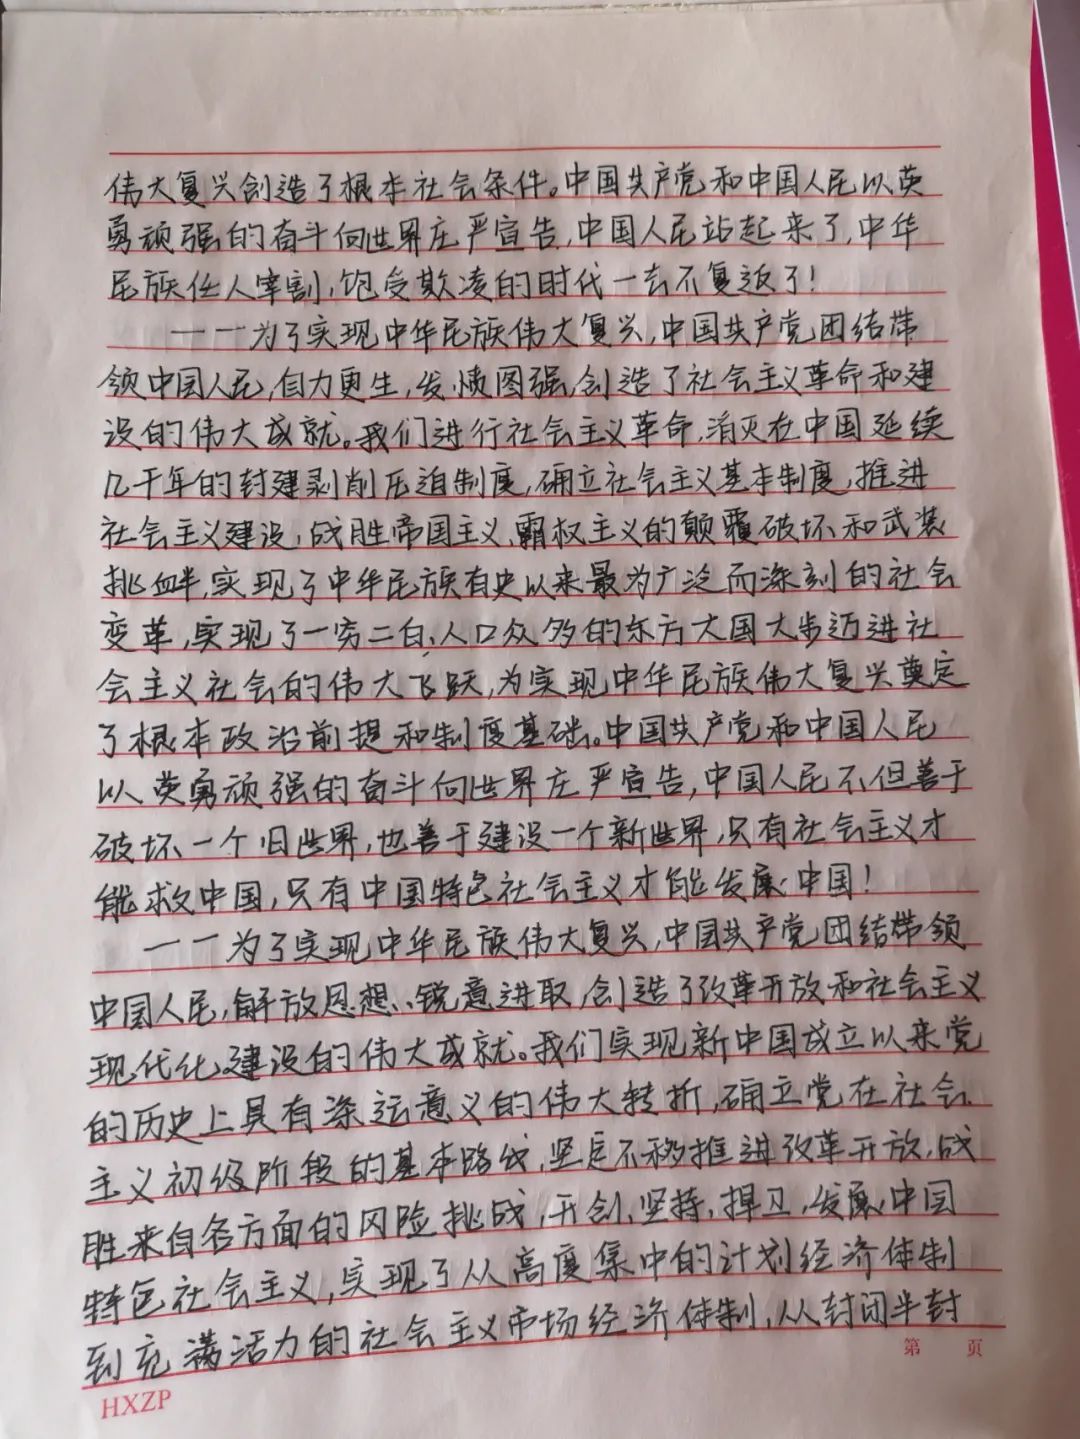 伟大复兴创造了根本社会条件。中国共产党和中国人民以英
勇顽强的奋斗向世界庄严宣告,中国人民站起来了,中华
民族任人宰割,饱受欺凌的时代一去不复返了!
——为了实现中华民族伟大复兴,中国共产党团结带
领中国人民,自力更生,发愤图强,创造了社会主义革命和建
设的伟大成就。我们进行社会主义革命,消灭在中国延续
几千年的封建剥削压迫制度,确立社会主义基本制度,推进
社会主义建设,战胜帝国主义、霸权主义的颠覆破坏和武装
挑衅,实现了中华民族有史以来最为广泛而深刻的社会
变革,实现了一穷二白、人口众多的东方大国大步迈进社
会主义社会的伟大飞跃,为实现中华民族伟大复兴奠定
了根本政治前提和制度基础。中国共产党和中国人民
以英勇顽强的奋斗向世界庄严宣告,中国人民不但善于
破坏一个旧世界,也善于建设一个新世界,只有社会主义才
能救中国,只有中国特色社会主义才能发展中国!
——为了实现中华民族伟大复兴,中国共产党团结带领
中国人民,解放思想、锐意进取,创造了改革开放和社会主义
现代化建设的伟大成就。我们实现新中国成立以来党
的历史上具有深远意义的伟大转折,确立党在社会
主义初级阶段的基本路线,坚定不移推进改革开放,战
胜来自各方面的风险挑战,开创、坚持、捍卫、发展中国
特色社会主义,实现了从高度集中的计划经济体制
到充满活力的社会主义市场经济体制,从封闭半封
第 页
HXZP